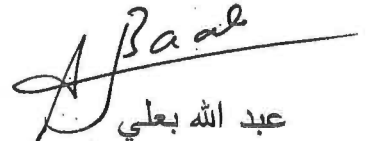 A Baali
عبد الله بعلي